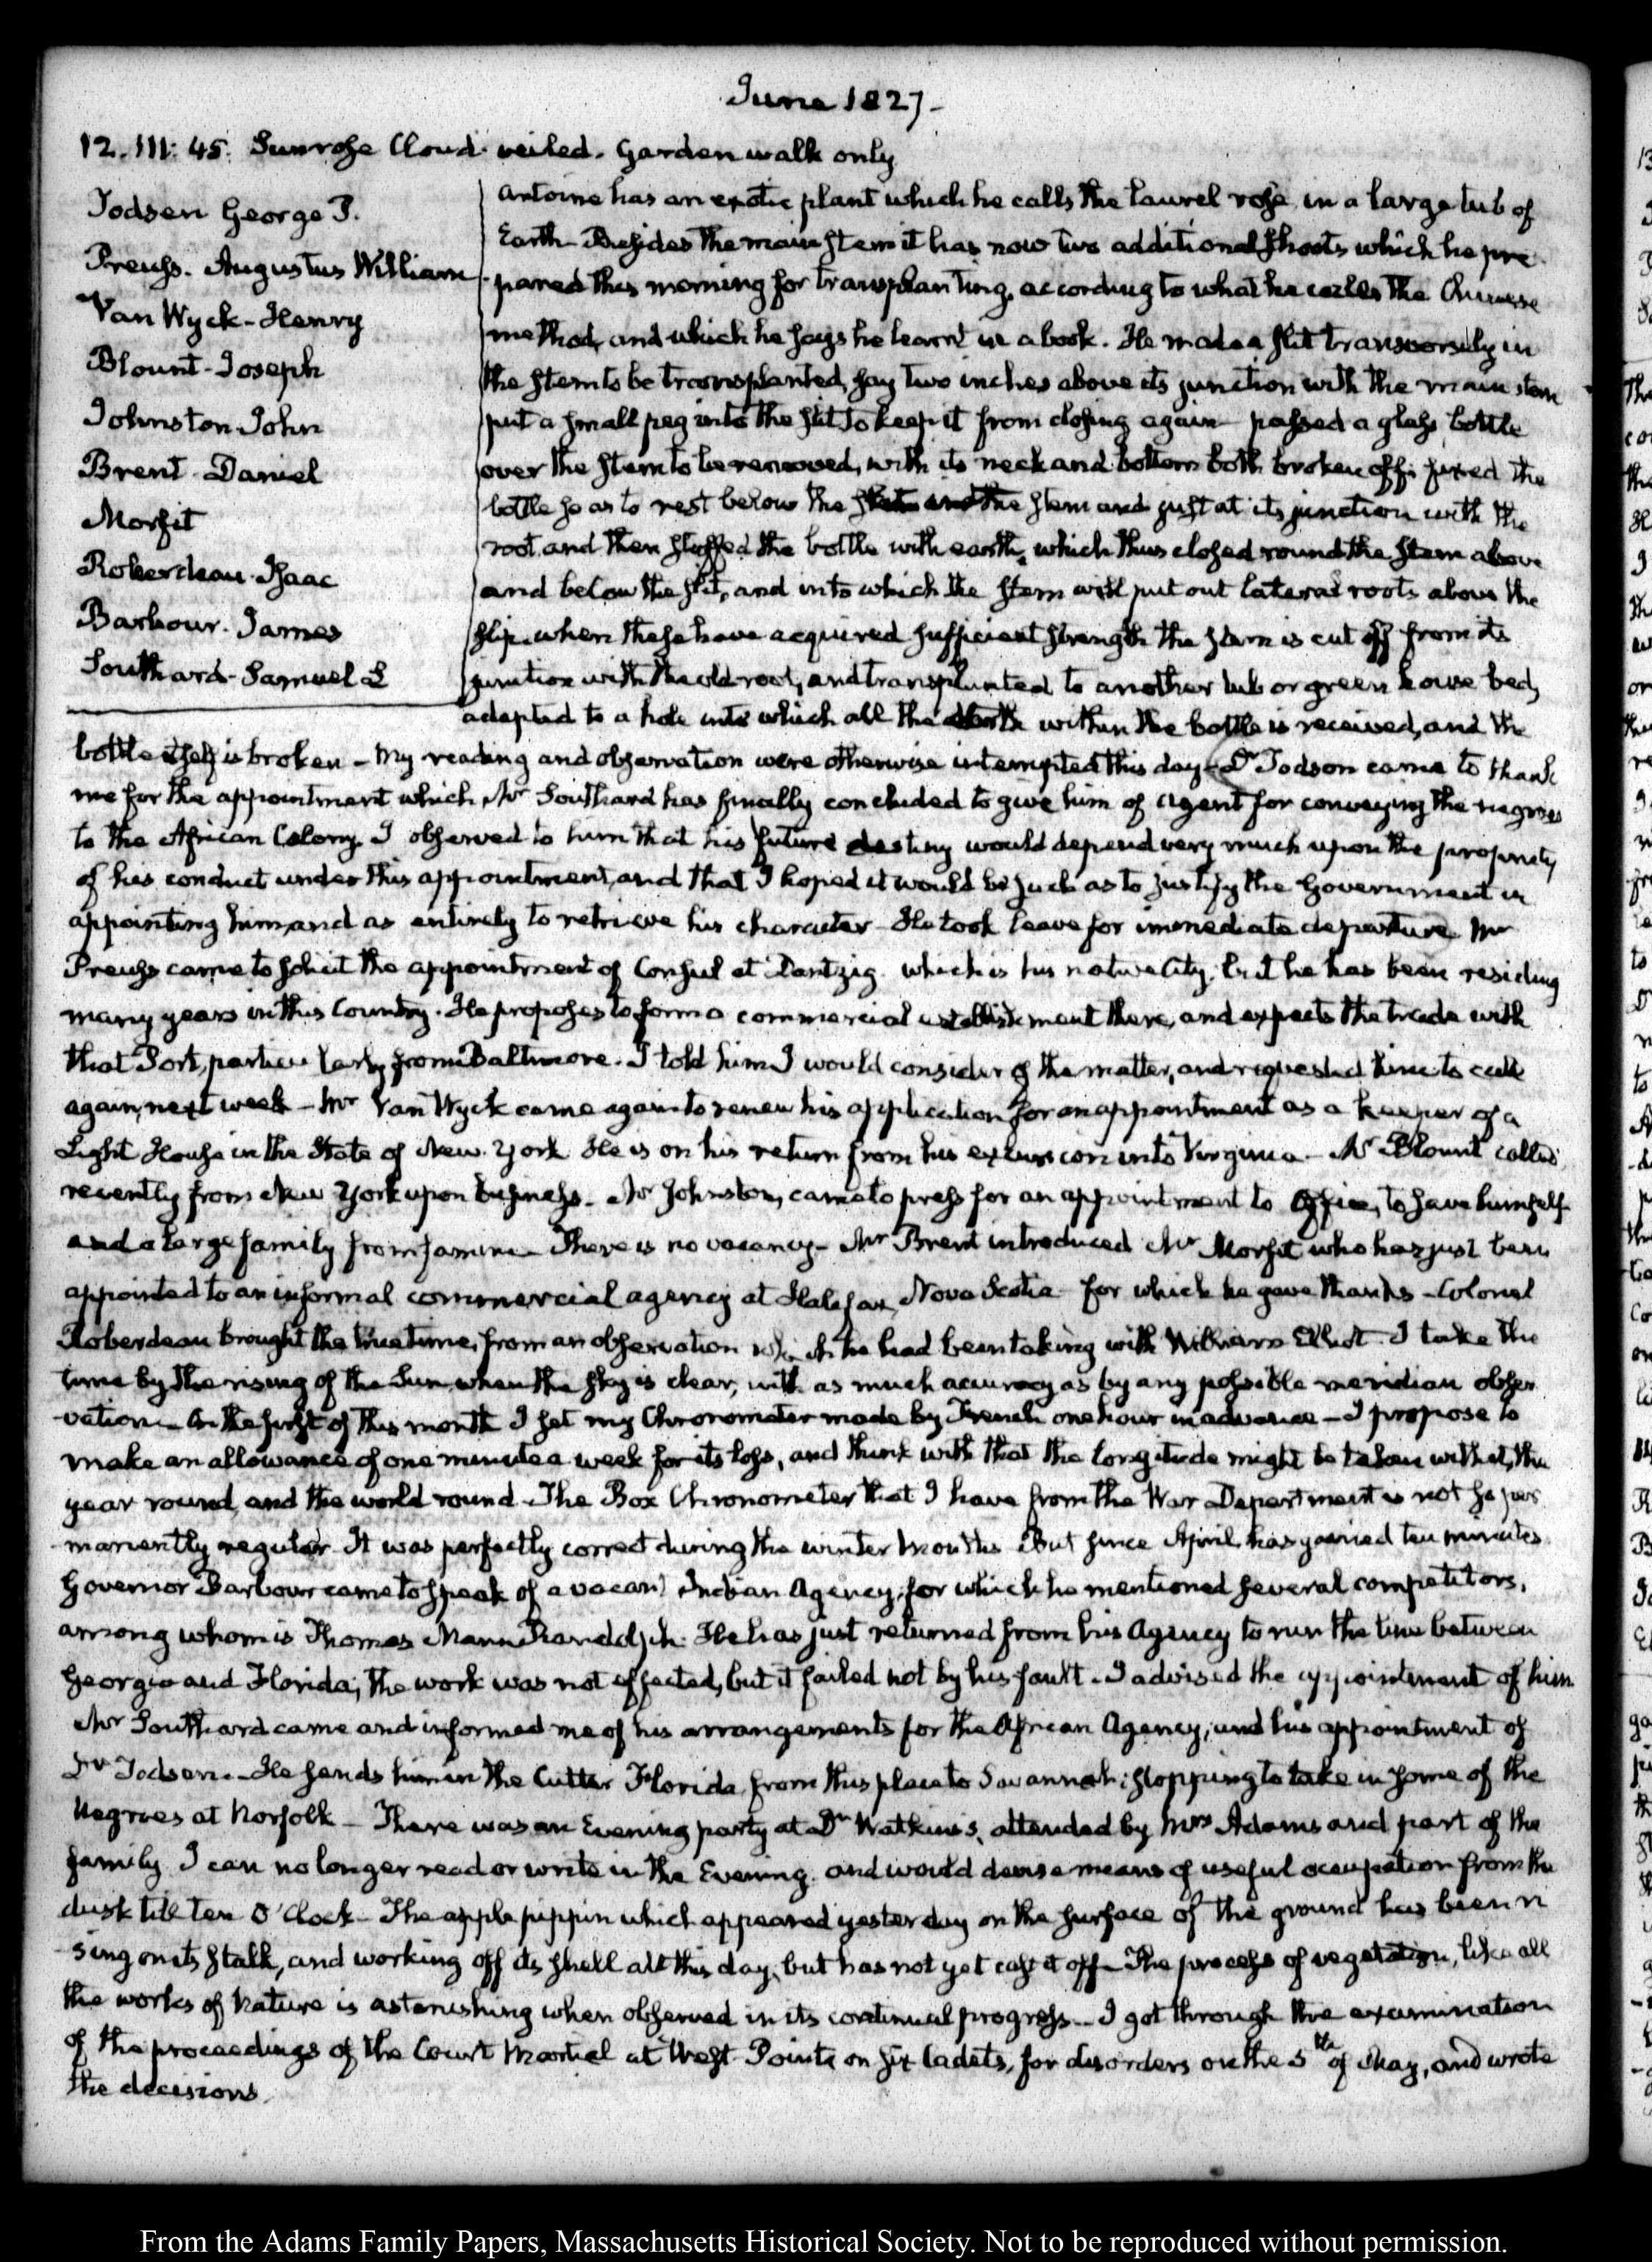 June 1827.
12. III: 45. Sunrose Cloud veiled. Garden walk only
Todsen George P.
Preuss. Augustus William
Van Wyck - Henry
Blount - Joseph
Johnston John
Brent - Daniel
Morfit
Roberdeau - Isaac
Barbour - James
Southard - Samuel L
Antoine has an exotic plant which he calls the laurel rose, in a large tub of
Earth. Besides the main stem it has now two additional shoots which he pre-
pared this morning for transplanting, according to what he calls the Chinese
method, and which he says he learnt in a book. He made a slit transversely in
the stem to be transplanted, say two inches above its junction with the main stem
put a small peg into the slit to keep it from closing again - passed a glass bottle
over the stem to be removed, with its neck and bottom both broken off; fixed the
bottle so as to rest below the the stem and just at its junction with the
root and then stuffed the bottle with earth, which thus closed round the stem above
and below the slit, and into which the stem will put out lateral roots above the
slip. when these have acquired sufficient strength the stem is cut off from its
junction with the old root, and transplanted to another tub or green house bed,
adapted to a hole into which all the earth within the bottle is received, and the
bottle itself is broken - My reading and observation were otherwise interrupted this day - Dr Todson came to thank
me for the appointment which Mr Southard has finally concluded to give him of Agent for conveying the negroes
to the African Colony. I observed to him that his future destiny would depend very much upon the propriety
of his conduct under this appointment, and that I hoped it would be such as to justify the Government in
appointing him, and as entirely to retrieve his character - He took leave for immediate departure. Mr
Preuss came to solicit the appointment of Consul at Dantzig. which is his native City, but he has been residing
many years in this Country. He proposes to form a commercial establishment there, and expects the trade with
that Port, particularly from Baltimore. I told him I would consider of the matter, and requested him to call
again, next week - Mr Van Wyck came again to renew his application for an appointment as a keeper of a
Light House in the State of New York. He is on his return from his excursion into Virginia - Mr Blount called
recently from New York upon business. Mr Johnston, came to press for an appointment to Office, to save himself
and a large family from famine - There is no vacancy - Mr Brent introduced Mr Morfit who has just been
appointed to an informal commercial agency at Halifax, Nova Scotia - for which he gave thanks - Colonel
Roberdeau brought the true time, from an observation which he had been taking with William Elliot - I take the
time by the rising of the Sun when the sky is clear, with as much accuracy as by any possible meridian obser-
vation - On the first of this month I set my Chronometer made by French one hour in advance - I propose to
make an allowance of one minute a week for its loss, and think with that the longitude might be taken with it, the
year round, and the world round. The Box Chronometer that I have from the War Department is not so per-
manently regular - It was perfectly correct during the winter Months - But since April has gained ten minutes.
Governor Barbour came to speak of a vacant Indian Agency, for which he mentioned several competitors,
among whom is Thomas Mann Randolph. He has just returned from his Agency to run the line between
Georgia and Florida; the work was not effected, but it failed not by his fault. I advised the appointment of him.
Mr Southard came and informed me of his arrangements for the African Agency, and his appointment of
Dr Todsen. He sends him in the Cutter Florida, from this place to Savannah; stopping to take in some of the
Negroes at Norfolk - There was an Evening party at Dr Watkins's, attended by Mrs Adams and part of the
family. I can no longer read or write in the Evening. and would devise means of useful occupation from the
dusk till ten O'Clock - The apple pippin which appeared yesterday on the surface of the ground has been ri-
sing on its stalk, and working off its shell all this day, but has not yet cast it off - The process of vegetation, like all
the works of Nature is astonishing when observed in its continual progress - I got through the examination
of the proceedings of the Court Martial at West-Point, on six Cadets, for disorders on the 5th of May, and wrote
the decisions.
From the Adams Family Papers, Massachusetts Historical Society. Not to be reproduced without permission.